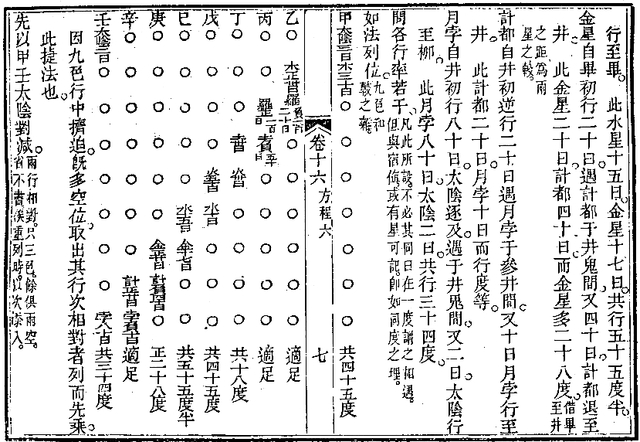 行至畢。此水星十五日。金星十七日。共行五十五度半。
金星自畢初行二十日。遇計都于井鬼間。又四十日。計都退至
井。此金星二十日。計都四十日。而金星多二十八度。借畢至井
之距爲兩星之較。
計都自井初逆行二十日。遇月孛于參井間。又十日。月孛行至
井。此計都二十日。月孛十日而行度等。
月孛自井初行八十日。太陰逐及遇于井鬼間。又二日。太陰行
至柳。此月孛八十日。太陰二日。共行三十四度。
問各行率若干。凡此所設。不必其同日在一度謂之相遇。但與宿或有星可記。即如同度之理。
如法列位。九色和較之雜
卷十六 方程六 七
甲 太陰 ○ ○ ○ ○ ○ ○ ○ 共四十五度
乙 ○ ○ ○ ○ ○ ○ ○ 適足
丙 ○ ○ ○ ○ ○ ○ ○ 適足
丁 ○ ○ ○ ○ ○ ○ ○ 共十八度
戊 ○ ○ ○ ○ ○ ○ ○ 共四十五度
己 ○ ○ ○ ○ ○ ○ ○ 共五十五度半
庚 ○ ○ ○ ○ ○ ○ ○ 正二十八度
辛 ○ ○ ○ ○ ○ ○ ○ 適足
壬 太陰 ○ ○ ○ ○ ○ ○ ○ 共三十四度
因九色行中擠迫。既多空位。取出其行次相對者列而先乘。
此捷法也。
先以甲壬太陰對減。兩行相對。只三色。餘俱兩空。省不書。俟重列時。以次添入。